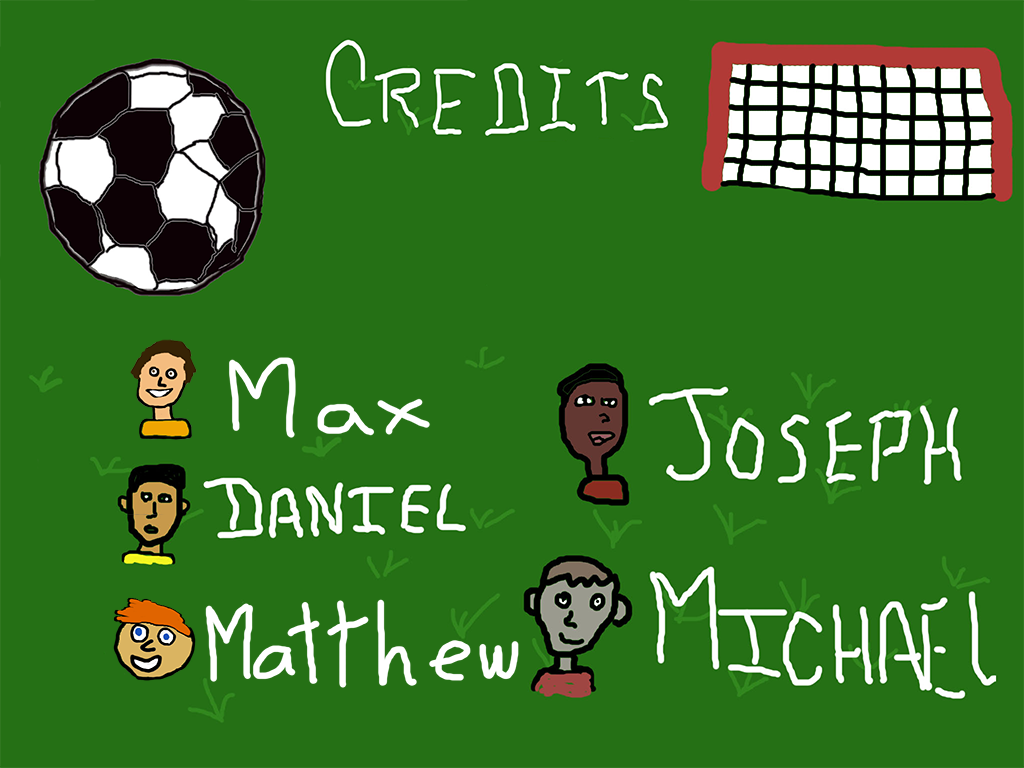 CREDITS
Max
DANIEL
Matthew
JOSEPH
MICHAEL